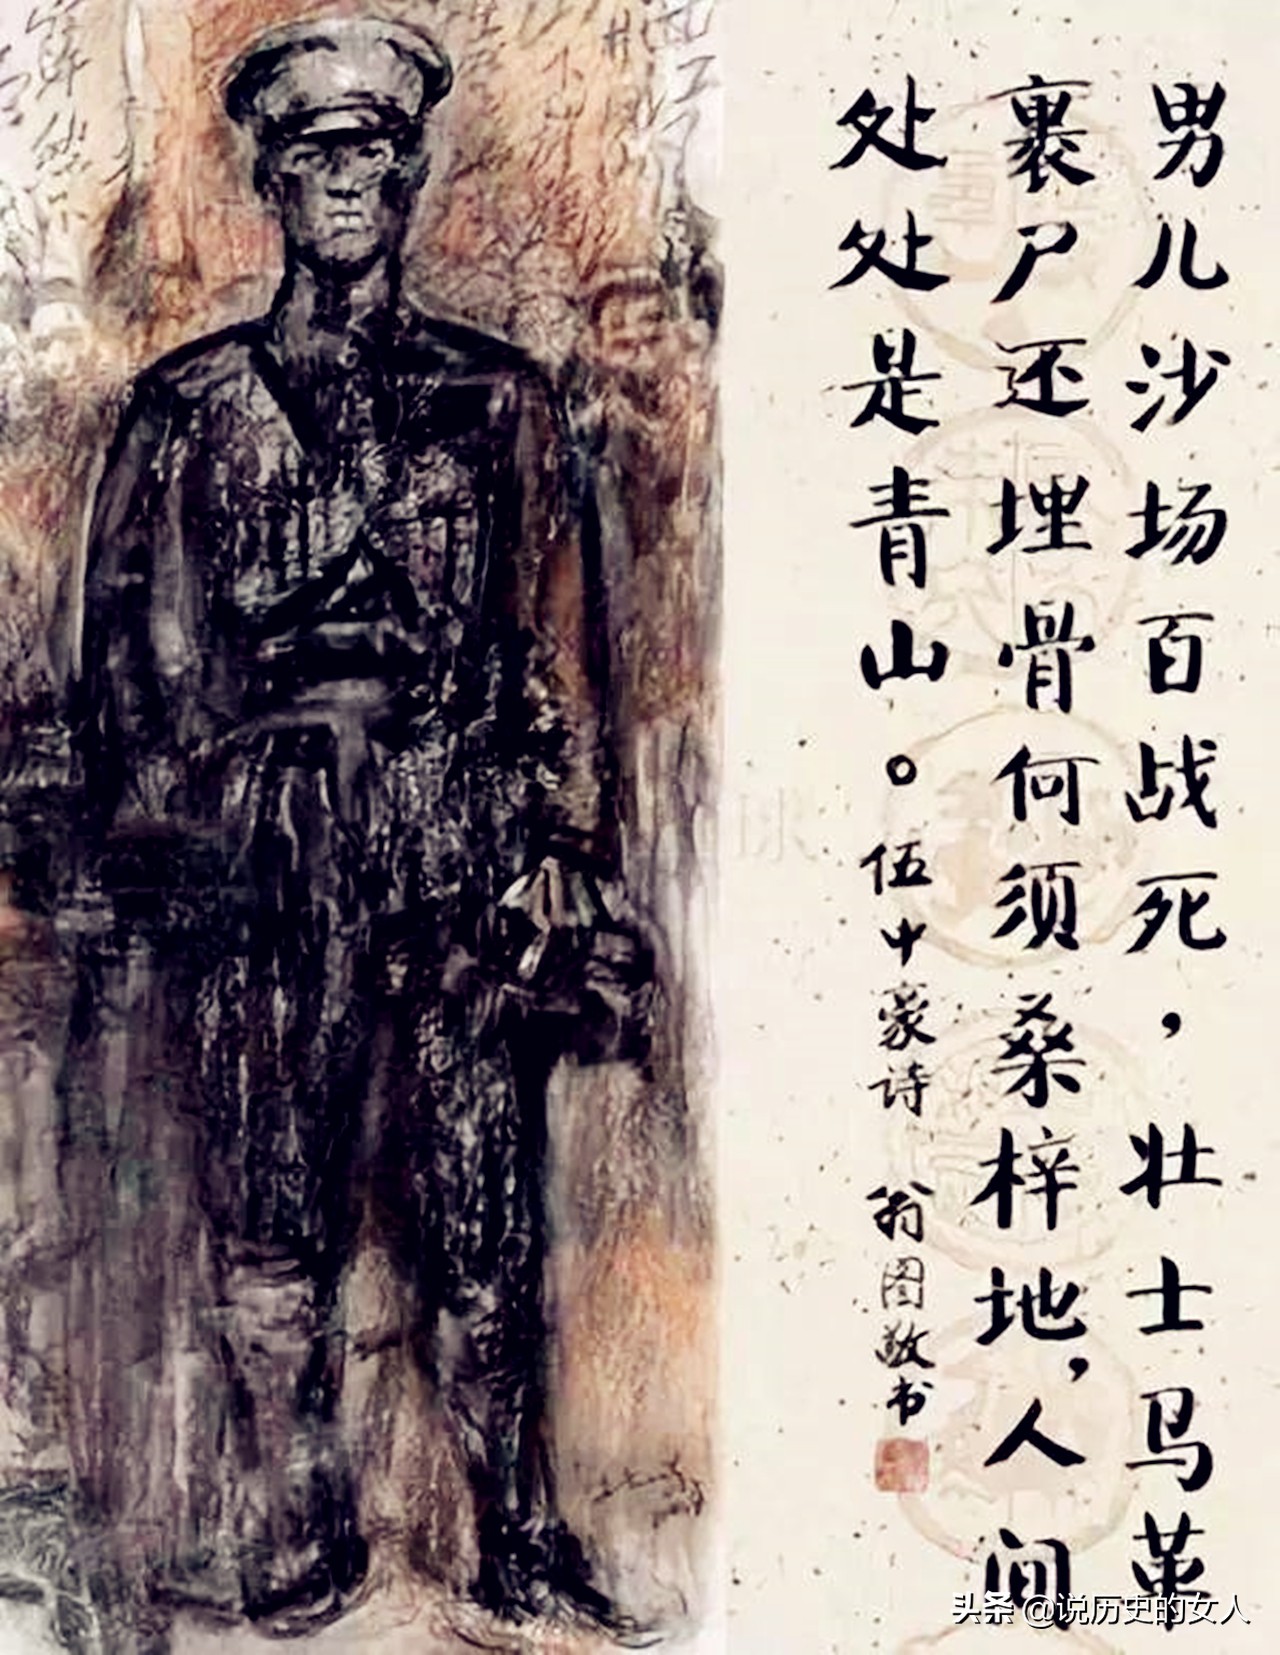 男儿沙场百战死，壮士马革
裹尸还埋骨何须桑梓地，人间
处处是青山。伍中豪诗 翁图敬书
头条 @说历史的女人